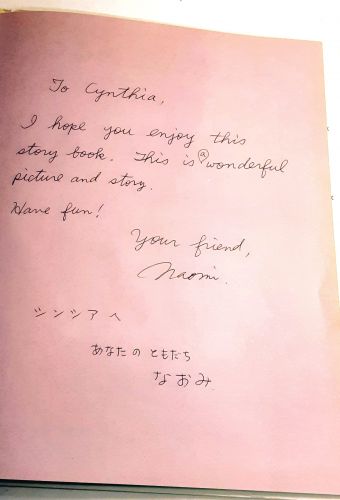 To Cynthia,
I hope you enjoy this
story book. This is a wonderful
picture and story.
Have fun!
Your friend,
Naomi.
シンシアへ
あなたの ともだち
なおみ